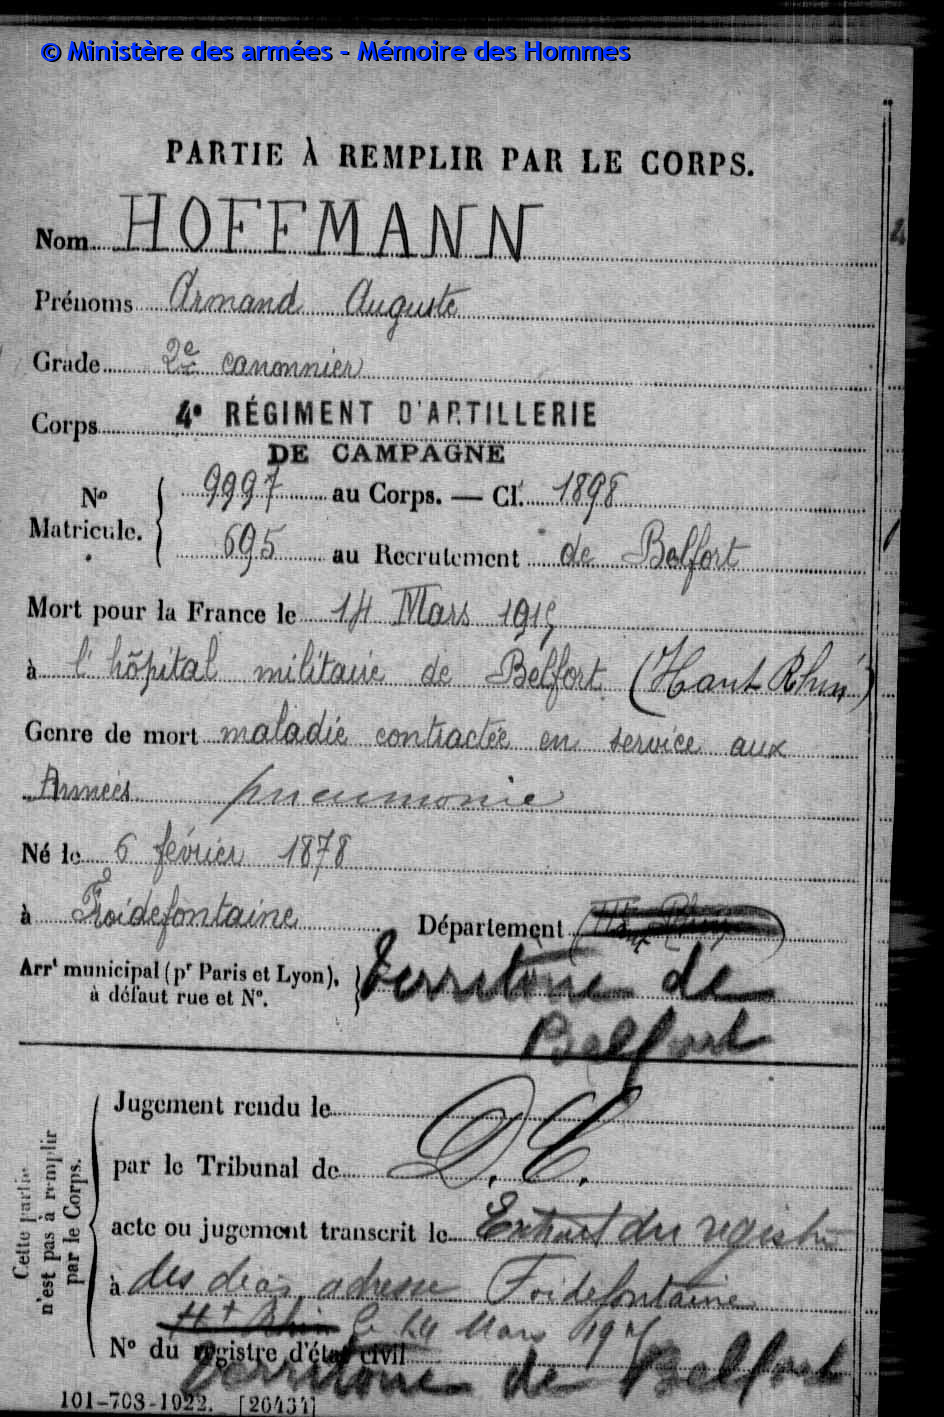 © Ministère des armées - Mémoire des Hommes
PARTIE À REMPLIR PAR LE CORPS.
Nom HOFFMANN
Prénoms Armand Auguste
Grade 2e canonnier
Corps 4e RÉGIMENT D'ARTILLERIE
DE CAMPAGNE
No Matricule. 9997 au Corps. — Cl. 1898
695 au Recrutement de Belfort
Mort pour la France le 14 Mars 1915
à l'hôpital militaire de Belfort (Haut Rhin)
Genre de mort maladie contractée en service aux
Armées pneumonie
Né le 6 février 1878
à Froidefontaine Département (Ht Rhin)
Arrt municipal (pr Paris et Lyon), à défaut rue et No. Territoire de
Belfort
Cette partie n'est pas à remplir par le Corps.
Jugement rendu le
par le Tribunal de D.C.
acte ou jugement transcrit le Extrait du registre
à des décès adresse Froidefontaine
Ht Rhin le 14 Mars
No du registre d'état civil
Territoire de Belfort
101-708-1922. [26434]